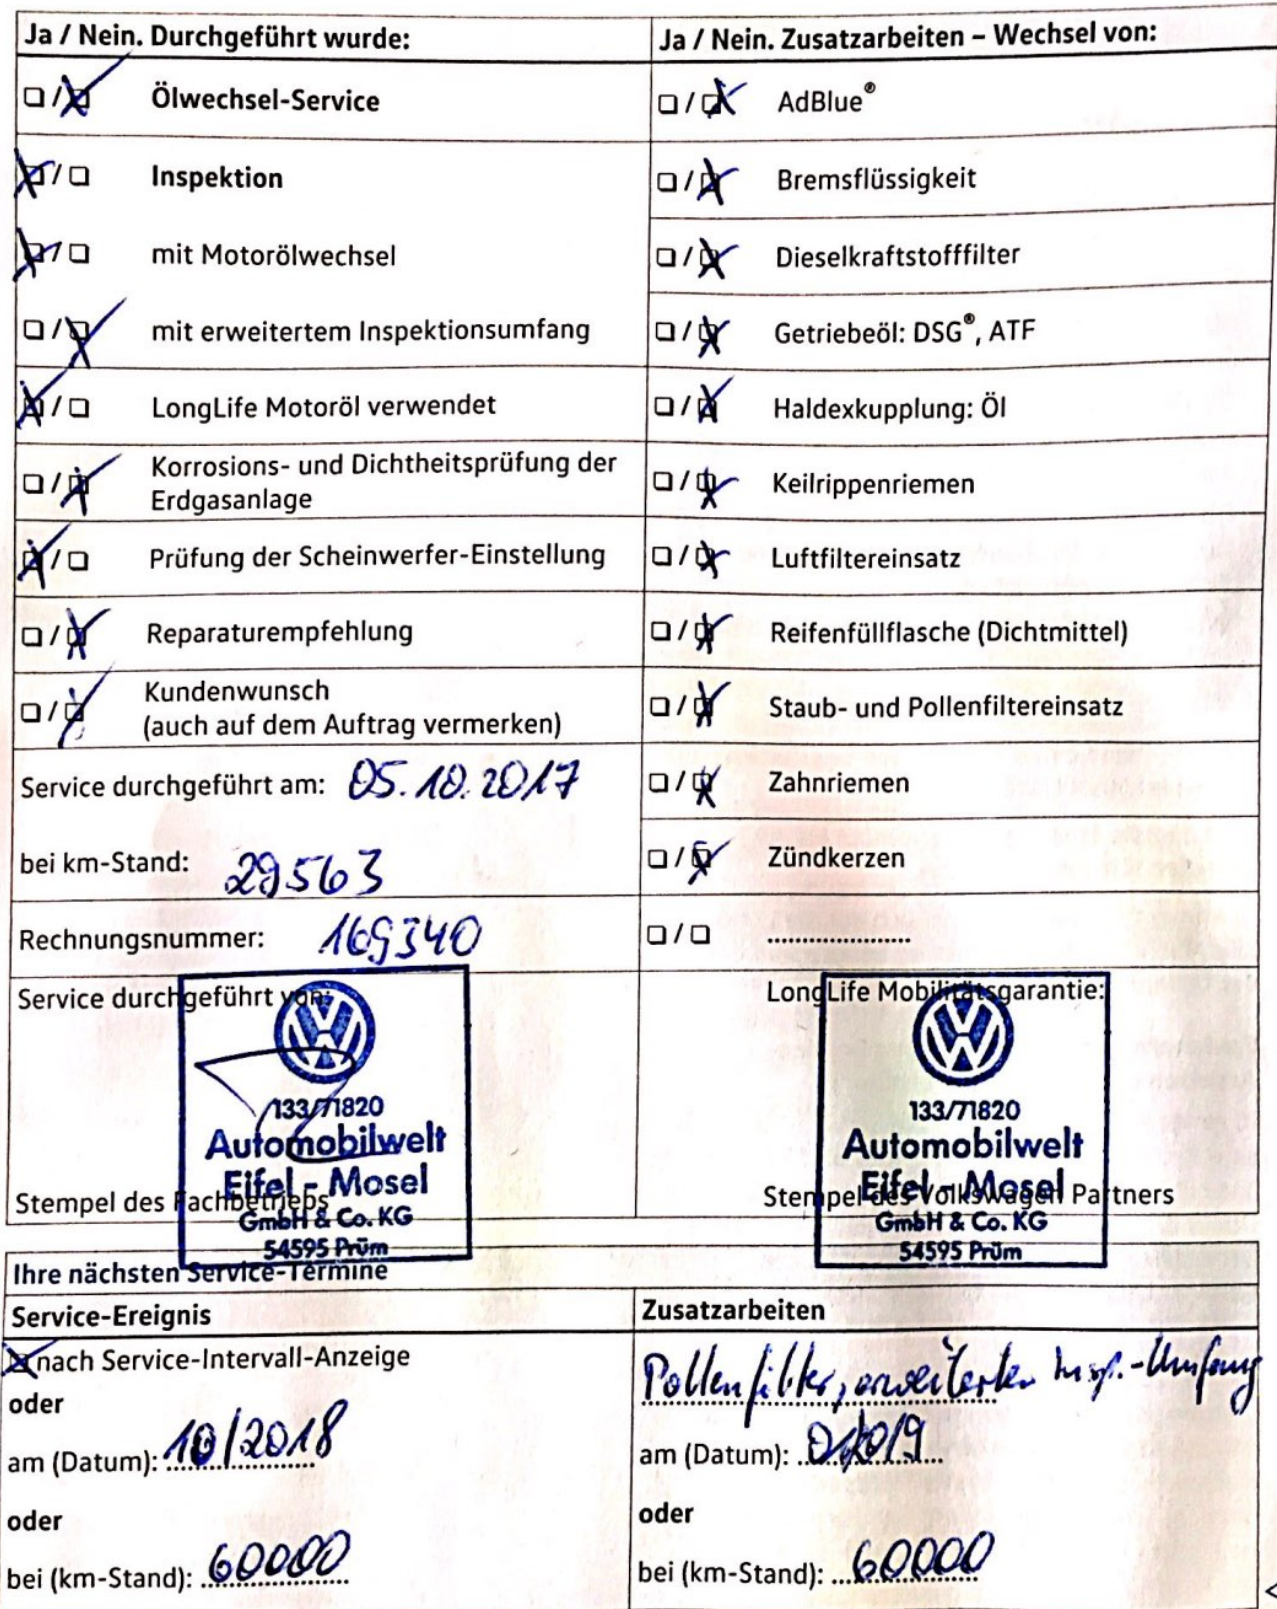 Ja / Nein. Durchgeführt wurde:
☐ / ☒ Ölwechsel-Service
☒ / ☐ Inspektion
☒ / ☐ mit Motorölwechsel
☐ / ☒ mit erweitertem Inspektionsumfang
☒ / ☐ LongLife Motoröl verwendet
☐ / ☒ Korrosions- und Dichtheitsprüfung der
Erdgasanlage
☒ / ☐ Prüfung der Scheinwerfer-Einstellung
☐ / ☒ Reparaturempfehlung
☐ / ☒ Kundenwunsch
(auch auf dem Auftrag vermerken)
Service durchgeführt am: 05.10.2017
bei km-Stand: 29563
Rechnungsnummer: 169340
Service durchgeführt von:
133/71820
Automobilwelt
Eifel - Mosel
GmbH & Co. KG
54595 Prüm
Stempel des Fachbetriebs
Ja / Nein. Zusatzarbeiten – Wechsel von:
☐ / ☒ AdBlue®
☐ / ☒ Bremsflüssigkeit
☐ / ☒ Dieselkraftstofffilter
☐ / ☒ Getriebeöl: DSG®, ATF
☐ / ☒ Haldexkupplung: Öl
☐ / ☒ Keilrippenriemen
☐ / ☒ Luftfiltereinsatz
☐ / ☒ Reifenfüllflasche (Dichtmittel)
☐ / ☒ Staub- und Pollenfiltereinsatz
☐ / ☒ Zahnriemen
☐ / ☒ Zündkerzen
☐ / ☐ ......................
LongLife Mobilitätsgarantie:
133/71820
Automobilwelt
Eifel - Mosel
GmbH & Co. KG
54595 Prüm
Stempel des Volkswagen Partners
Ihre nächsten Service-Termine
Service-Ereignis
☒ nach Service-Intervall-Anzeige
oder
am (Datum): 10/2018
oder
bei (km-Stand): 60000
Zusatzarbeiten
Pollenfilter, erweiterter Insp.-Umfang
am (Datum):
oder
bei (km-Stand): 60000